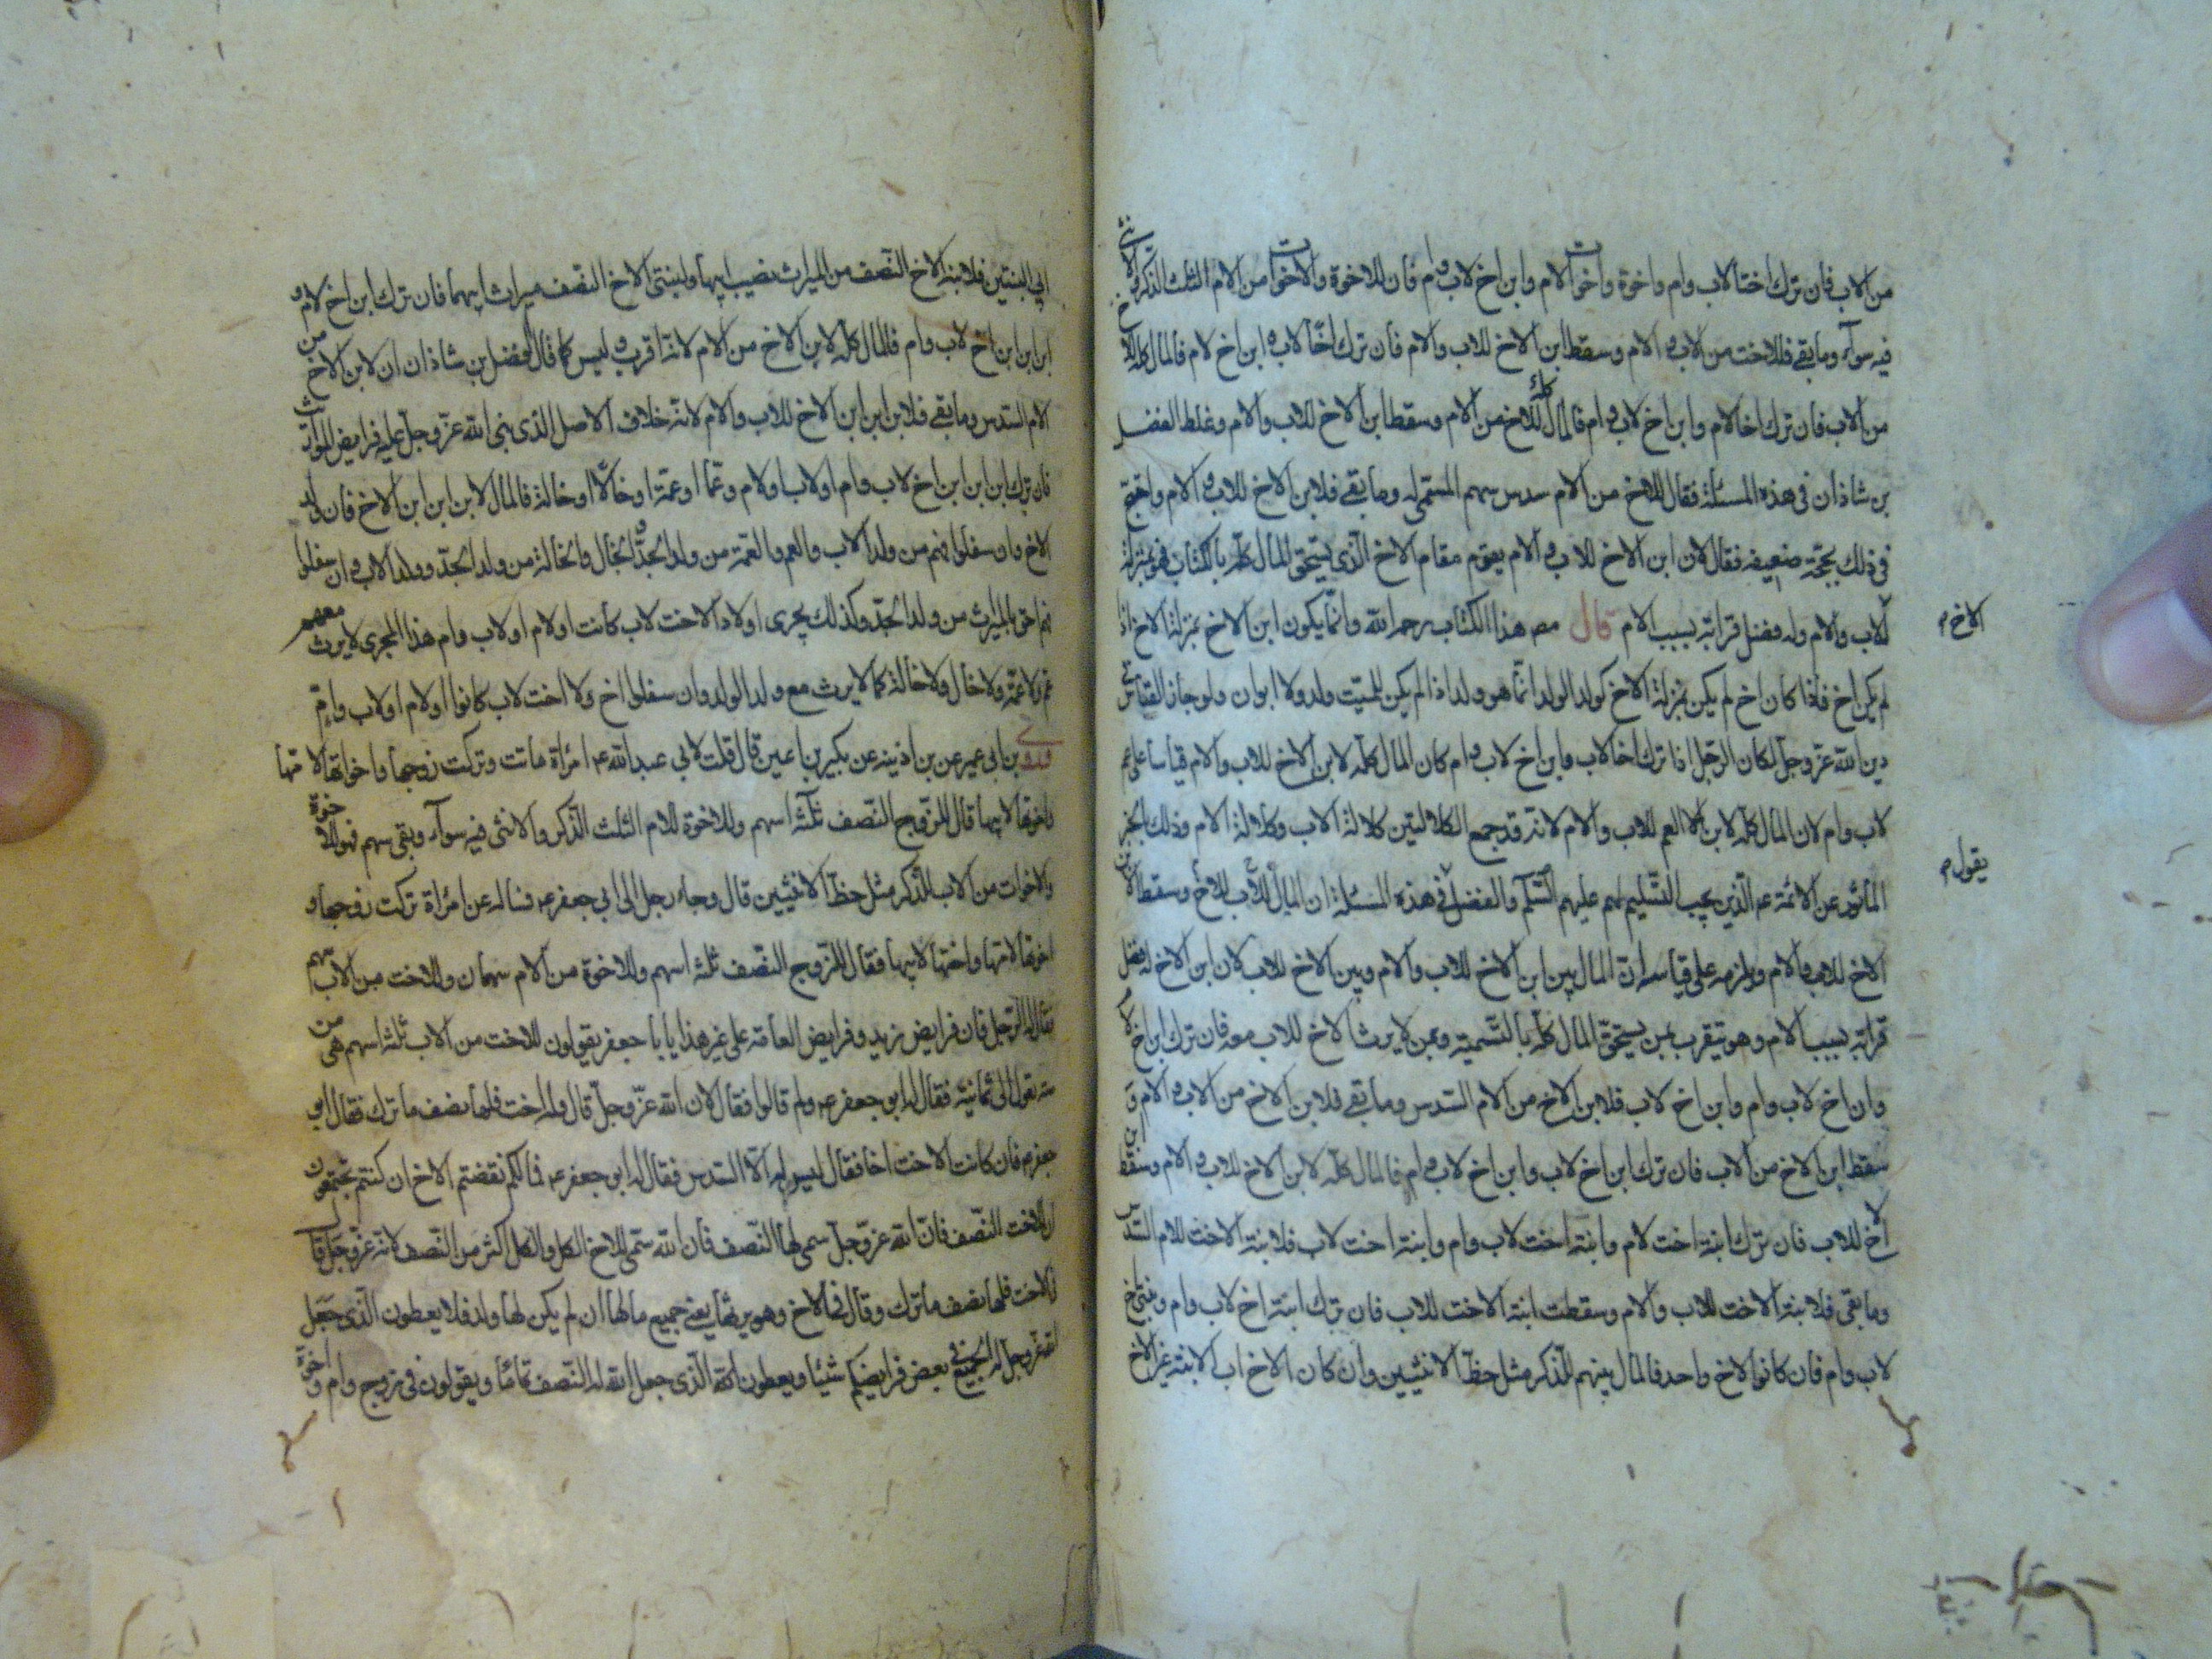 من الاب فان ترك اختا لاب وام واخوة واخوات لام وابن اخ لاب وام فان للاخوة والاخوات من الام الثلث الذكر والانثى
فيه سوآء وما بقي فللاخت من الاب و الام وسقط ابن الاخ للاب والام فان ترك اخا لاب و ابن اخ لام فالمال كله للاخ
من الاب فان ترك اخا لام وابن اخ لاب و ام فالمال كله للاخ من الام وسقط ابن الاخ للاب والام وغلط الفضل
بن شاذان في هذه المسئلة فقال للاخ من الام سدس سهم المسمى له وما بقي فلابن الاخ للاب و الام واحتج
في ذلك بحجة ضعيفة فقال لان ابن الاخ للاب و الام يقوم مقام الاخ الذي يستحق المال كله بالكتاب فهو بمنزلة
الاخ
للاب والام وله فضل قرابة بسبب الام قال مص هذا الكتاب رحمه الله وانما يكون ابن الاخ بمنزلة الاخ اذا
لم يكن اخ فاذا كان اخ لم يكن بمنزلة الاخ كولد الولد انما هو ولد اذا لم يكن للميت ولد ولا ابوان ولو جاز القياس في
دين الله عز وجل لكان الرجل اذا ترك اخا لاب وابن اخ لاب و ام كان المال كله لابن الاخ للاب والام قياسا على عم
لاب وام لان المال كله لابن العم للاب والام لانه قد جمع الكلالتين كلالة الاب وكلالة الام وذلك بالخبر
يقول
الماثور عن الائمة عم الذين يجب التسليم لهم عليهم السلم والفضل في هذه المسئلة ان المال للاخ للاب وسقط ابن
الاخ للاب والام ويلزمه على قياسه ان المال بين ابن الاخ للاب والام وبين الاخ للاب لان ابن الاخ له فضل
قرابة بسبب الام وهو يتقرب بمن يستحق المال كله بالتسمية وبمن لا يرث الاخ للاب معه فان ترك ابن اخ لام
وابن اخ لاب وام وابن اخ لاب فلابن الاخ من الام السدس وما بقي فلابن الاخ من الاب و الام و
سقط ابن الاخ من الاب فان ترك ابن اخ لاب وابن اخ لاب و ام فالمال كله لابن الاخ للاب و الام وسقط ابن
الاخ للاب فان ترك ابنة اخت لام وابنة اخت لاب وام وابنة اخت لاب فلابنة الاخت للام السدس
وما بقي فلابنة الاخت للاب والام وسقطت ابنة الاخت للاب فان ترك ابنة اخ لاب وام وبنتي اخ
لاب وام فان كانوا لاخ واحد فالمال بينهم للذكر مثل حظ الانثيين وان كان الاخ اب الابنة غير الاخ
ابي البنتين فلابنة الاخ النصف من الميراث نصيب ابيها ولبنتي الاخ النصف ميراث ابيهما فان ترك ابن اخ لام و
ابن ابن ابن اخ لاب وام فالمال كله لابن الاخ من الام لانه اقرب و ليس كما قال الفضل بن شاذان ان لابن الاخ من
الام السدس وما بقي فلابن ابن ابن الاخ للاب والام لانه خلاف الاصل الذي بنى الله عز وجل عليه فرايض المواريث
فان ترك ابن ابن ابن اخ لاب وام او لاب او لام وعما او عمة او خالا او خالة فالمال لابن ابن ابن الاخ فان ولد
الاخ وان سفلوا فهم من ولد الاب والعم والعمة من ولد الجد و الخال والخالة من ولد الجد وولد الاب و ان سفلوا
فهم احق بالميراث من ولد الجد وكذلك يجرى اولاد الاخت لاب كانت او لام او لاب وام هذا المجرى لا يرث معهم
عم ولا عمة ولا خال ولا خالة كما لا يرث مع ولد الولد وان سفلوا اخ ولا اخت لاب كانوا او لام او لاب وام
وروى بن ابي عمير عن بن اذينة عن بكير بن اعين قال قلت لابي عبد الله عم امراة ماتت وتركت زوجها واخواتها لامها
واخوتها لابيها قال للزوج النصف ثلثة اسهم وللاخوة للام الثلث الذكر والانثى فيه سوآء وبقى سهم فهو للاخوة
والاخوات من الاب للذكر مثل حظ الانثيين قال وجاء رجل الى ابي جعفر عم فساله عن امراة تركت زوجها و
اخوتها لامها واختها لابيها فقال للزوج النصف ثلثة اسهم وللاخوة من الام سهمان وللاخت من الاب سهم
فقال له الرجل فان فرايض زيد وفرايض العامة على غير هذا يا با جعفر يقولون للاخت من الاب ثلثة اسهم هي من
ستة تعول الى ثمانية فقال له ابو جعفر عم ولم قالوا فقال لان الله عز وجل قال وله اخت فلها نصف ما ترك فقال ابو
جعفر عم فان كانت الاخت اخا فقال ليس له الا السدس فقال له ابو جعفر عم فما لكم نقصتم الاخ ان كنتم تحتجون
ان للاخت النصف فان الله عز وجل سمى لها النصف فان الله سمى للاخ الكل والكل اكثر من النصف لانه عز وجل قال
في الاخت فلها نصف ما ترك وقال في الاخ وهو يرثها يعني جميع مالها ان لم يكن لها ولد فلا يعطون الذي جعل
الله عز وجل له الجميع في بعض فرايضكم شيئا ويعطون الذي جعل الله له النصف تاما ويقولون في زوج وام واخوة